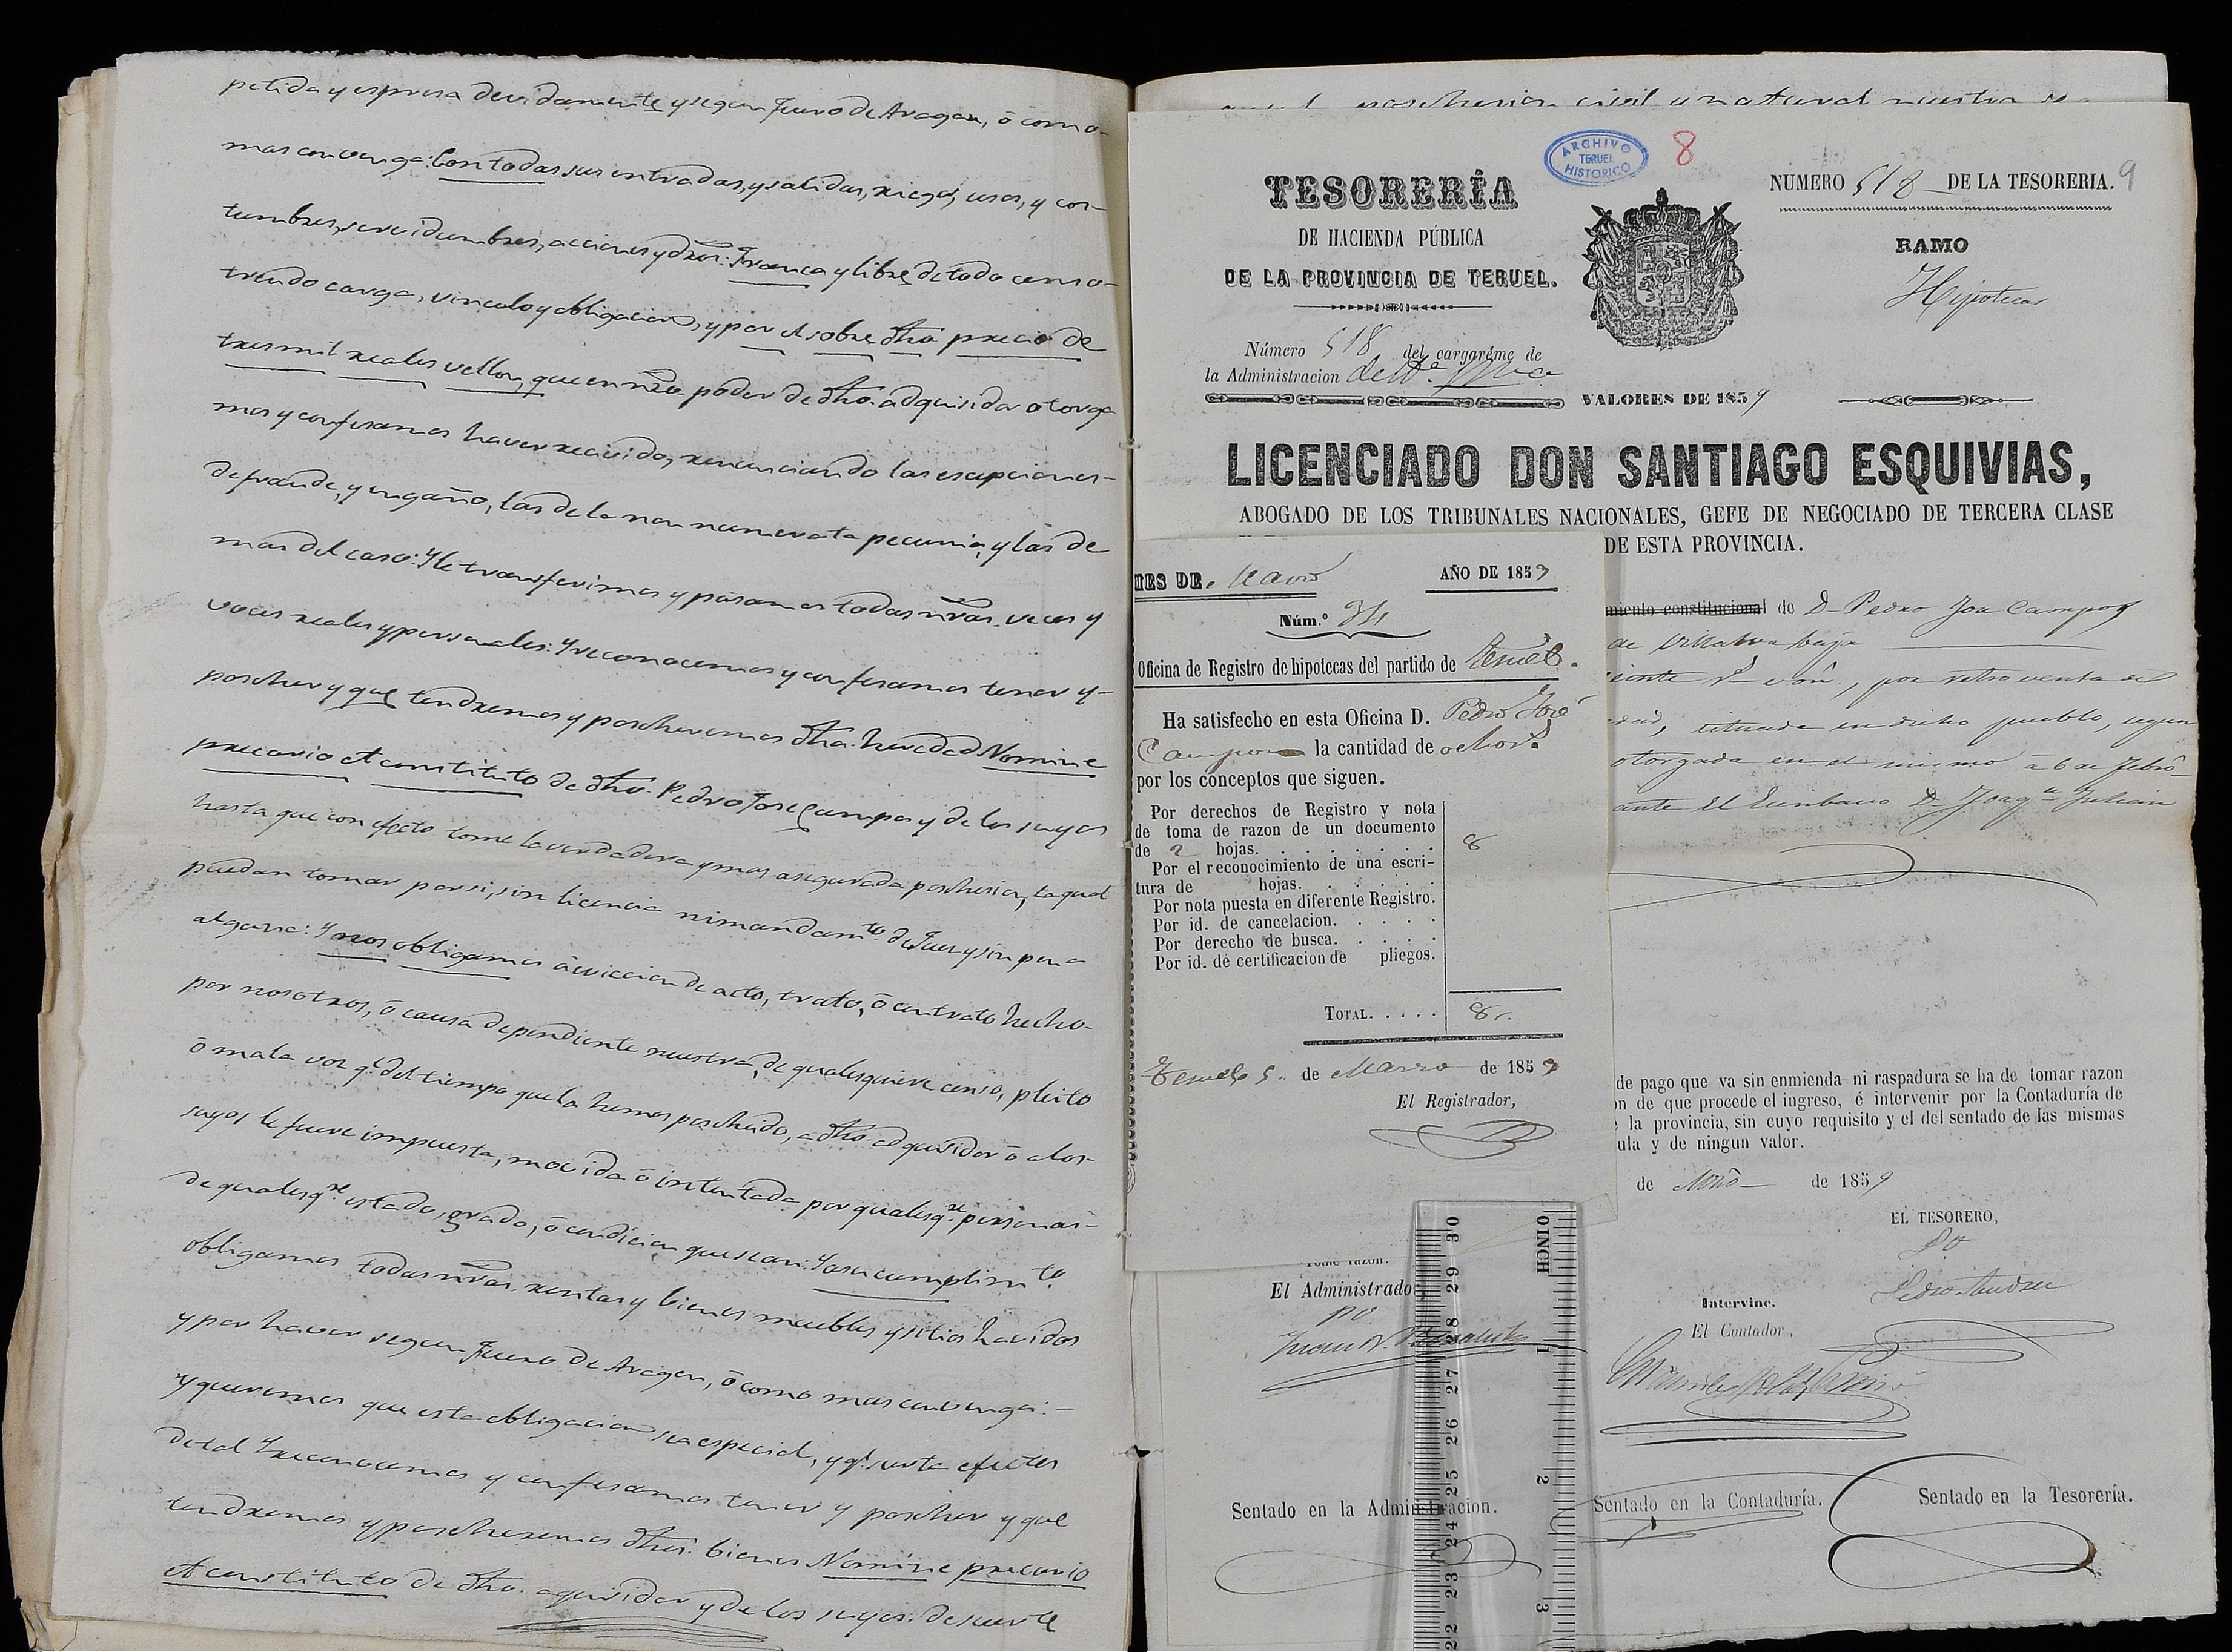 petida y espresa devidamente y segun Fuero de Aragon, ó como
mas convenga: Con todas sus entradas, y salidas, riegos, usos, y cos-
tumbres, servidumbres, acciones y dros: Franca y libre de todo censo
treudo carga, vinculo y obligacion, y por el sobre dho precio de
tres mil reales vellon, que en nro poder de dho. adquisidor otorga
mos y confesamos haver recivido, renunciando las escepciones-
de fraude, y engaño, las de la non numerata pecunia, y las de
mas del caso: Y le transferimos y pasamos todas nras. veces y
voces reales y personales: Y reconocemos y confesamos tener y-
poseher y que tendremos y poseheremos dha. heredad Nomine
precario et constituto de dho. Pedro Jose Campos y de los suyos
hasta que con efecto tome la verdadera y mas asegurada posehesion, la qual
puedan tomar por si, sin licencia ni mandamto. de Juez y sin pena
alguna: Y nos obligamos á eviccion de acto, trato, ó contrato hecho-
por nosotros, ó causa dependiente nuestra, de qualesquiere censo, pleito
ó mala voz q.e del tiempo que la hemos posehido, a dho adquisidor ó a los-
suyos le fuere impuesta, movida ó intentada por qualesq.re personas-
de qualesq.re estado, grado, ó condicion que sean: Y a su cumplimto.
obligamos todas nras. rentas y bienes muebles y sitios havidos
y por haver segun Fuero de Aragon, ó como mas convenga:-
y queremos que esta obligacion sea especial, y q.e surta efectos
de tal Y reconocemos y confesamos tener y poseher y que
tendremos y poseheremos dhos. bienes Nomine precario
et constituto de dho. aquisidor y de los suyos: de suerte
posehesion civil natural nuestra
ARCHIVO
TERUEL
HISTORICO
8
9
TESORERÍA
DE HACIENDA PÚBLICA
DE LA PROVINCIA DE TERUEL.
NUMERO 518 DE LA TESORERIA.
RAMO
Hipotecas
Número 518 del cargaréme de
la Administracion
VALORES DE 1859
LICENCIADO DON SANTIAGO ESQUIVIAS,
ABOGADO DE LOS TRIBUNALES NACIONALES, GEFE DE NEGOCIADO DE TERCERA CLASE
DE ESTA PROVINCIA.
miento constitucional de D. Pedro José Campos
de Villalva baja
einte r.s von., por retroventa de
dad, situada en dicho pueblo, segun
otorgada en el mismo á 6 de Febro
ante el Escribano D. Joaqn Julian
MES DE Marzo AÑO DE 1859
Núm.º 34
Oficina de Registro de hipotecas del partido de Teruel.
Ha satisfecho en esta Oficina D. Pedro José
Campos la cantidad de ocho r.s
por los conceptos que siguen.
Por derechos de Registro y nota
de toma de razon de un documento
de 2 hojas. 8
Por el reconocimiento de una escri-
tura de hojas.
Por nota puesta en diferente Registro.
Por id. de cancelacion.
Por derecho de busca.
Por id. de certificacion de pliegos.
TOTAL. 8 r.
Teruel 5 de Marzo de 1859
El Registrador,
de pago que va sin enmienda ni raspadura se ha de tomar razon
on de que procede el ingreso, é intervenir por la Contaduría de
la provincia, sin cuyo requisito y el del sentado de las mismas
ula y de ningun valor.
de Mzo de 1859
EL TESORERO,
Tomé razon.
El Administrador
po
Intervine.
El Contador,
Sentado en la Administracion.
Sentado en la Contaduría.
Sentado en la Tesorería.
0INCH 1 2 3
30 29 28 27 26 25 24 23 22